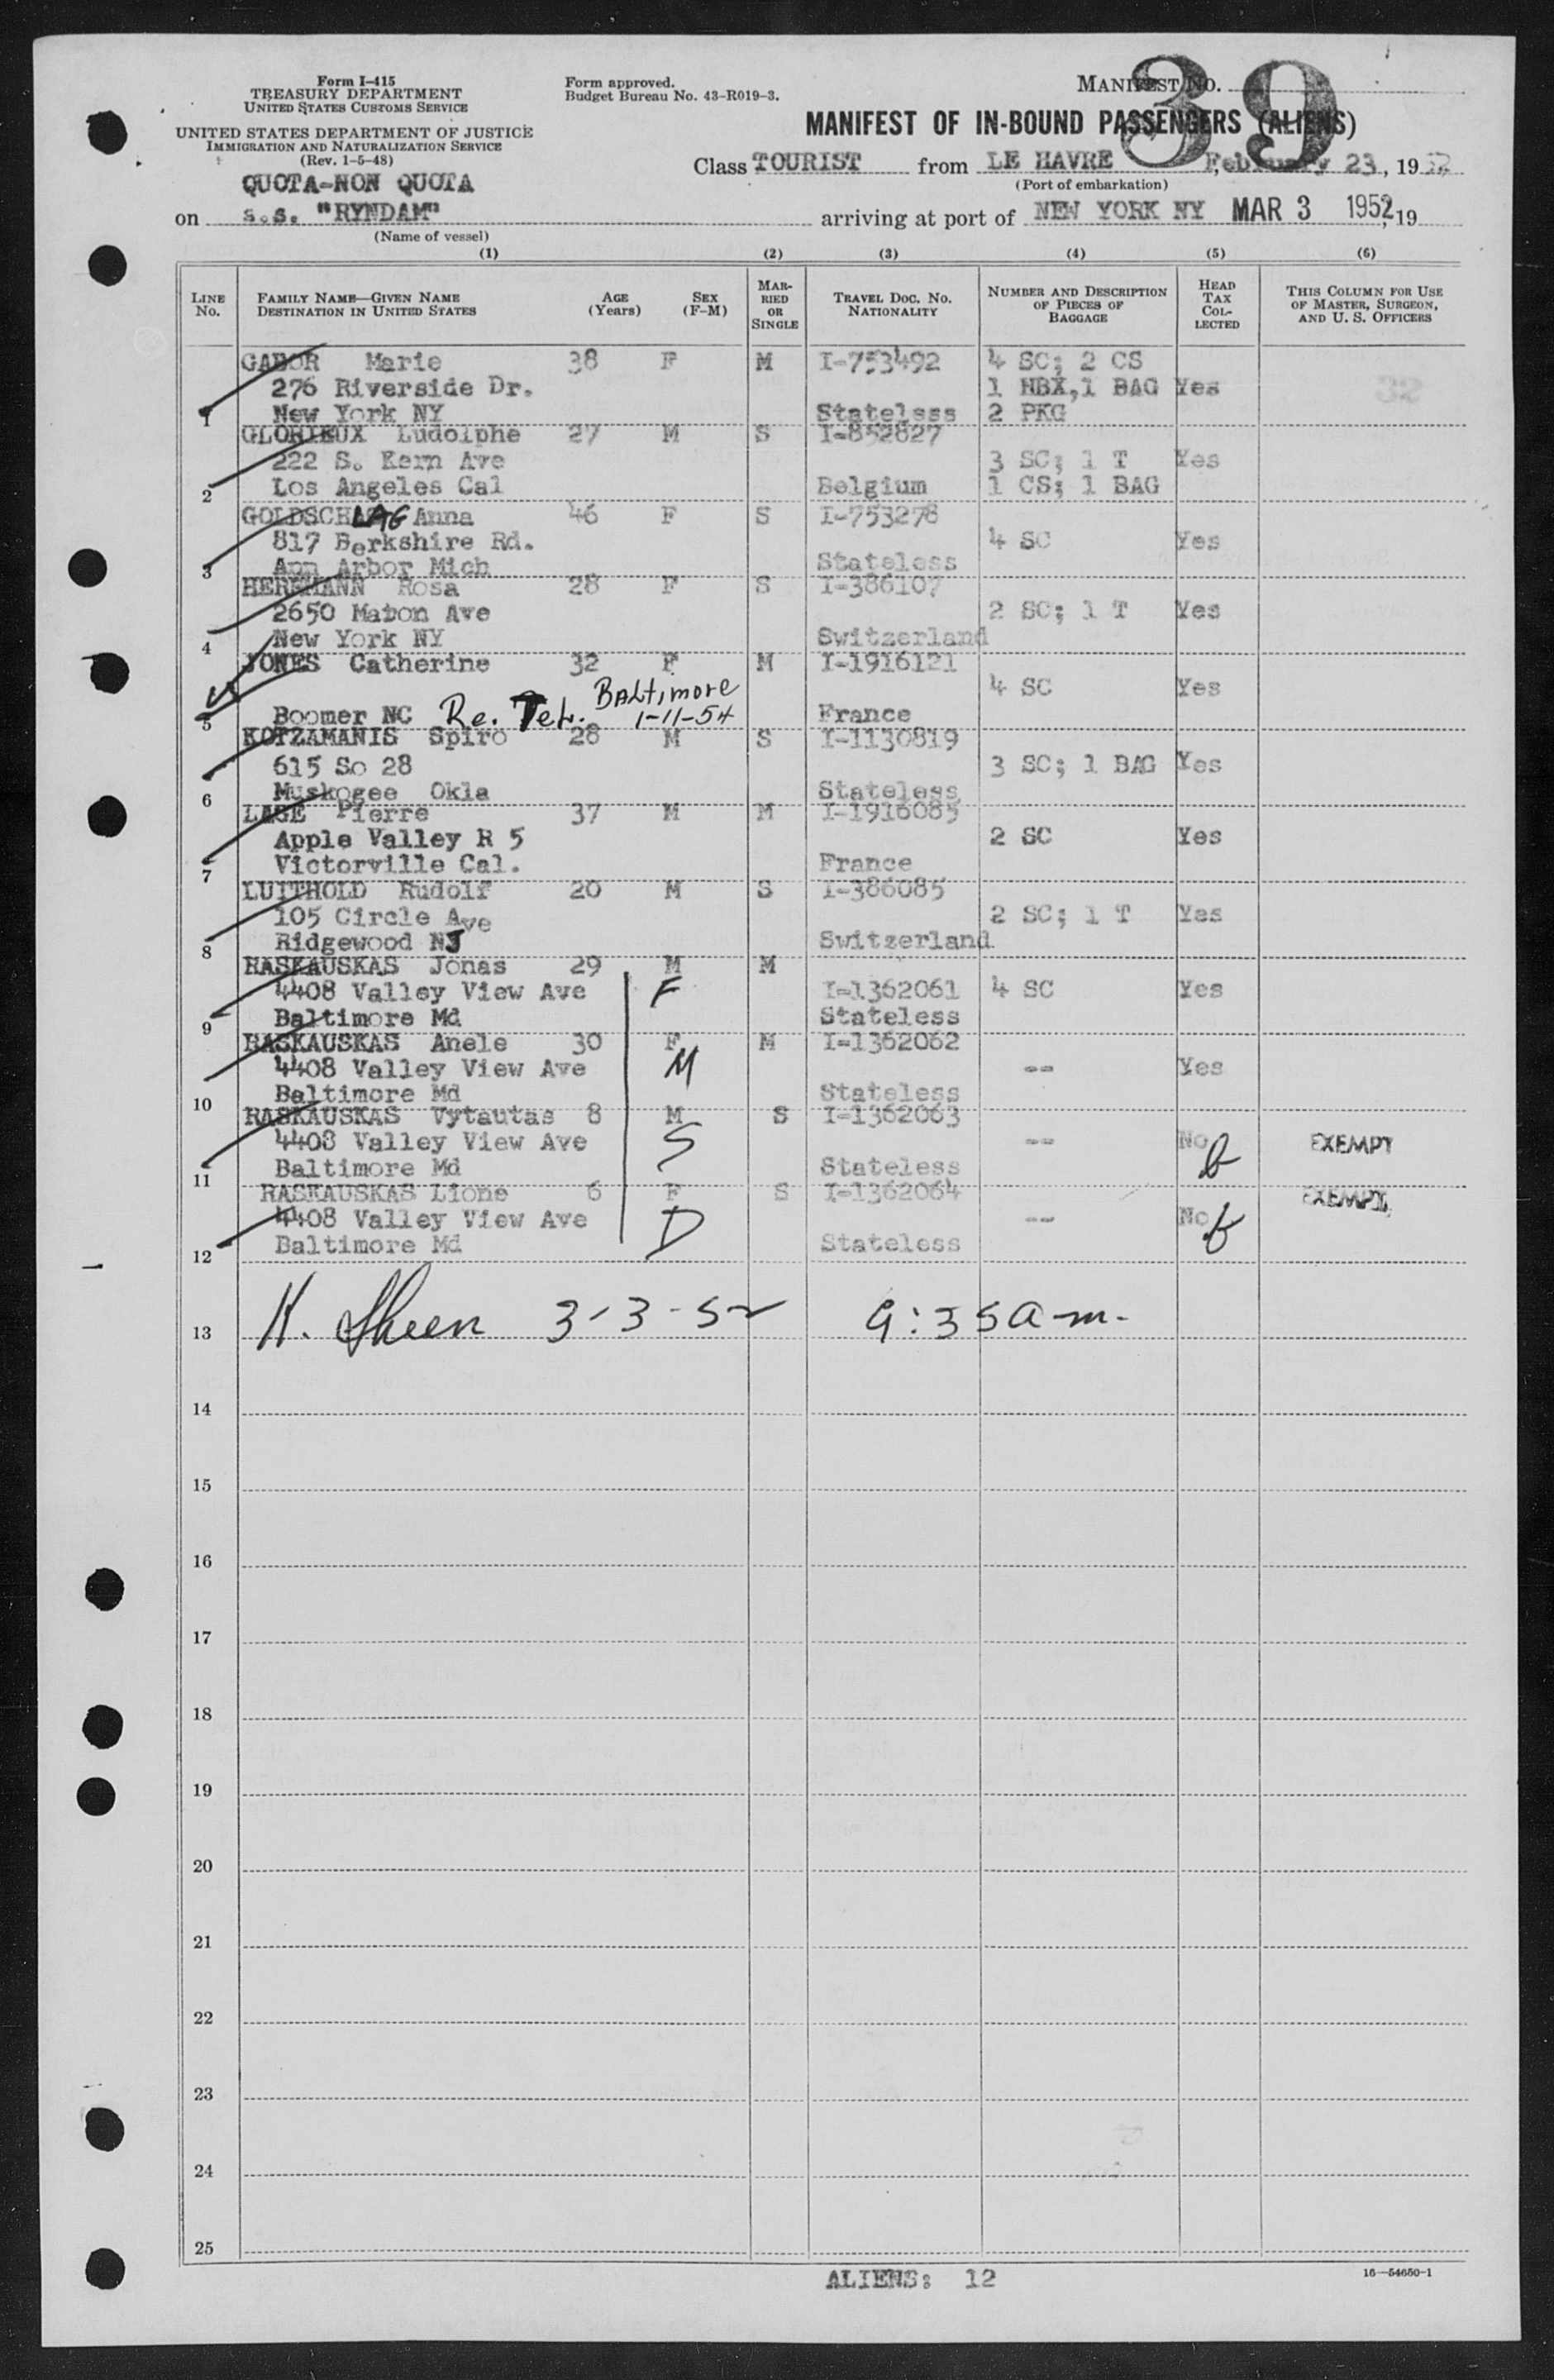 Form I-415
TREASURY DEPARTMENT
UNITED STATES CUSTOMS SERVICE
UNITED STATES DEPARTMENT OF JUSTICE
IMMIGRATION AND NATURALIZATION SERVICE
(Rev. 1-5-48)
Form approved.
Budget Bureau No. 43-R019-3.
MANIFEST NO. 39
MANIFEST OF IN-BOUND PASSENGERS (ALIENS)
Class TOURIST from LE HAVRE, February 23, 1952
(Port of embarkation)
QUOTA-NON QUOTA
on s.s. "RYNDAM" arriving at port of NEW YORK NY MAR 3 1952, 19
(Name of vessel)
(1) (2) (3) (4) (5) (6)
LINE No. FAMILY NAME—GIVEN NAME DESTINATION IN UNITED STATES AGE (Years) SEX (F-M) MARRIED OR SINGLE TRAVEL DOC. NO. NATIONALITY NUMBER AND DESCRIPTION OF PIECES OF BAGGAGE HEAD TAX COLLECTED THIS COLUMN FOR USE OF MASTER, SURGEON, AND U. S. OFFICERS
GABOR Marie 38 F M I-753492 4 SC; 2 CS
276 Riverside Dr. 1 HBX,1 BAG Yes 32
1 New York NY Stateless 2 PKG
GLORIEUX Ludolphe 27 M S I-852827
222 S. Kern Ave 3 SC; 1 T Yes
2 Los Angeles Cal Belgium 1 CS; 1 BAG
GOLDSCHLAG Anna 46 F S I-753278
817 Berkshire Rd. 4 SC Yes
3 Ann Arbor Mich Stateless
HERRMANN Rosa 28 F S I-386107
2650 Maton Ave 2 SC; 1 T Yes
4 New York NY Switzerland
JONES Catherine 32 F M I-1916121
4 SC Yes
5 Boomer NC Re. Tet. Baltimore 1-11-54 France
KOTZAMANIS Spiro 28 M S I-1130819
615 So 28 3 SC; 1 BAG Yes
6 Muskogee Okla Stateless
LAGE Pierre 37 M M I-1916085
Apple Valley R 5 2 SC Yes
7 Victorville Cal. France
LUITHOLD Rudolf 20 M S I-386085
105 Circle Ave 2 SC; 1 T Yes
8 Ridgewood NJ Switzerland
RASKAUSKAS Jonas 29 M M
4408 Valley View Ave F I-1362061 4 SC Yes
9 Baltimore Md Stateless
RASKAUSKAS Anele 30 F M I-1362062
4408 Valley View Ave M -- Yes
10 Baltimore Md Stateless
RASKAUSKAS Vytautas 8 M S I-1362063
4408 Valley View Ave S -- No EXEMPT
11 Baltimore Md Stateless
RASKAUSKAS Lione 6 F S I-1362064 EXEMPT
4408 Valley View Ave D -- No
12 Baltimore Md Stateless
13 K. Sheen 3-3-52 9:35 a-m-
14
15
16
17
18
19
20
21
22
23
24
25
ALIENS: 12
16—54650-1